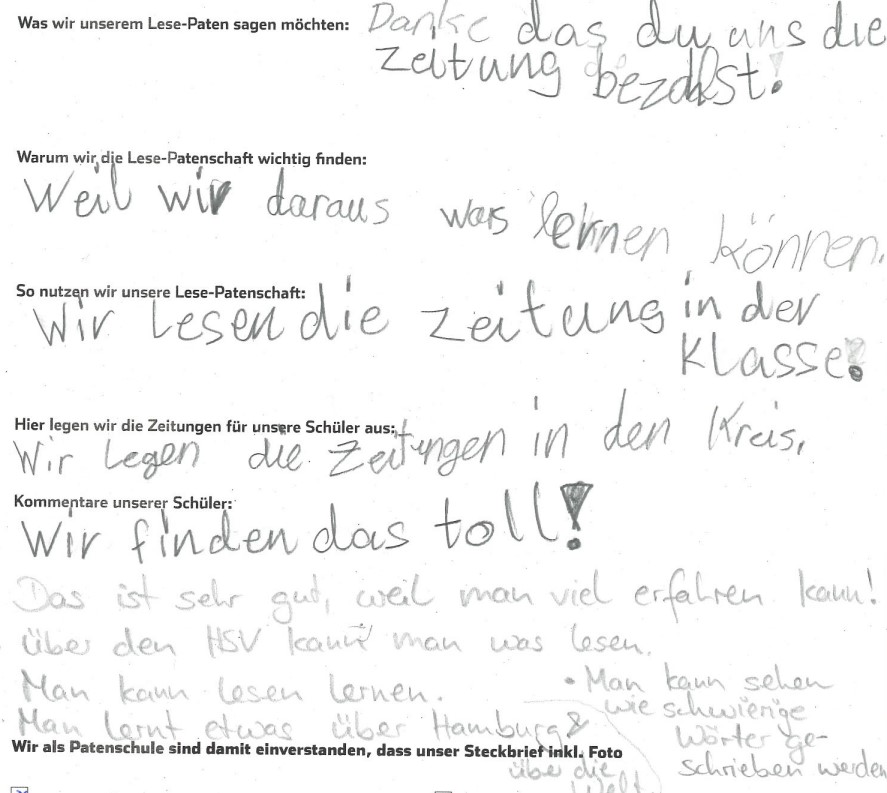 Was wir unserem Lese-Paten sagen möchten: Danke das du uns die
zeitung bezahlst!
Warum wir die Lese-Patenschaft wichtig finden:
Weil wir daraus was lernen können.
So nutzen wir unsere Lese-Patenschaft:
Wir Lesen die zeitung in der
Klasse!
Hier legen wir die Zeitungen für unsere Schüler aus:
Wir Legen die Zeitungen in den Kreis.
Kommentare unserer Schüler:
Wir finden das toll!
Das ist sehr gut, weil man viel erfahren kann!
über den HSV kann man was lesen.
Man kann lesen lernen.
Man lernt etwas über Hamburg &
über die
Welt
• Man kann sehen
wie schwierige
Wörter ge-
schrieben werden
Wir als Patenschule sind damit einverstanden, dass unser Steckbrief inkl. Foto